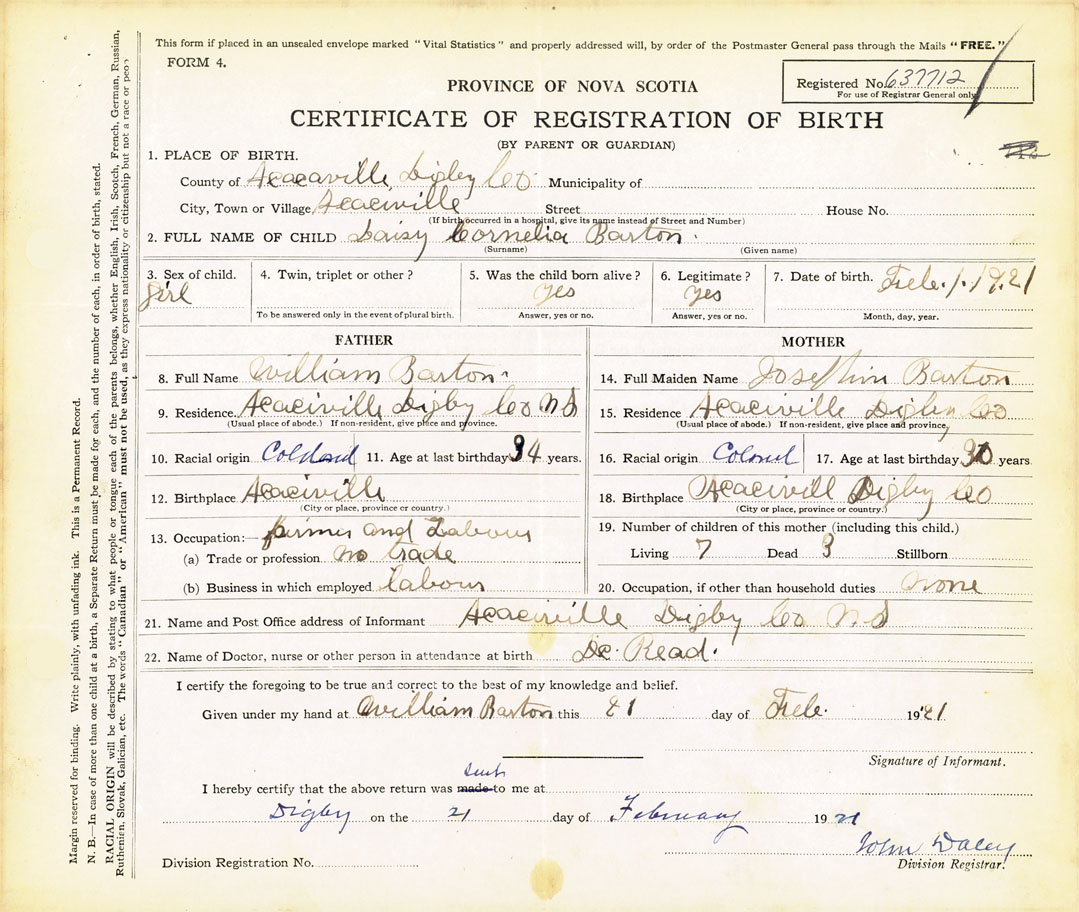 This form if placed in an unsealed envelope marked "Vital Statistics" and properly addressed will, by order of the Postmaster General pass through the Mails "FREE."
FORM 4.
Registered No. 637712
For use of Registrar General only
PROVINCE OF NOVA SCOTIA
CERTIFICATE OF REGISTRATION OF BIRTH
(BY PARENT OR GUARDIAN)
1. PLACE OF BIRTH.
County of Acacaville Digby Co Municipality of
City, Town or Village Acaciville Street House No.
(If birth occurred in a hospital, give its name instead of Street and Number)
2. FULL NAME OF CHILD Daisy Cornelia Barton.
(Surname) (Given name)
3. Sex of child. girl
4. Twin, triplet or other?
To be answered only in the event of plural birth.
5. Was the child born alive? yes
Answer, yes or no.
6. Legitimate? yes
Answer, yes or no.
7. Date of birth. Feb. 1. 1921
Month, day, year.
FATHER
8. Full Name William Barton.
9. Residence. Acaciville Digby Co N S
(Usual place of abode.) If non-resident, give place and province.
10. Racial origin 11. Age at last birthday 34 years.
12. Birthplace Acaciville
(City or place, province or country.)
13. Occupation:— farmer and Labour
(a) Trade or profession no trade
(b) Business in which employed labour
MOTHER
14. Full Maiden Name Barton
15. Residence Acaciville Digby Co
(Usual place of abode.) If non-resident, give place and province,
16. Racial origin 17. Age at last birthday 30 years
18. Birthplace Acacivill Digby Co
(City or place, province or country.)
19. Number of children of this mother (including this child.)
Living 7 Dead 3 Stillborn
20. Occupation, if other than household duties none
21. Name and Post Office address of Informant Acaciville Digby Co N S
22. Name of Doctor, nurse or other person in attendance at birth Dr. Read.
I certify the foregoing to be true and correct to the best of my knowledge and belief.
Given under my hand at William Barton this 21 day of Feb. 1921
Signature of Informant.
I hereby certify that the above return was made sent to me at
Digby on the 21 day of February 1921
John Daley
Division Registration No. Division Registrar.
Margin reserved for binding. Write plainly, with unfading ink. This is a Permanent Record.
N. B.—In case of more than one child at a birth, a Separate Return must be made for each, and the number of each, in order of birth, stated.
RACIAL ORIGIN will be described by stating to what people or tongue each of the parents belongs, whether English, Irish, Scotch, French, German, Russian,
Ruthenien, Slovak, Galician, etc. The words "Canadian" or "American" must not be used, as they express nationality or citizenship but not a race or peo